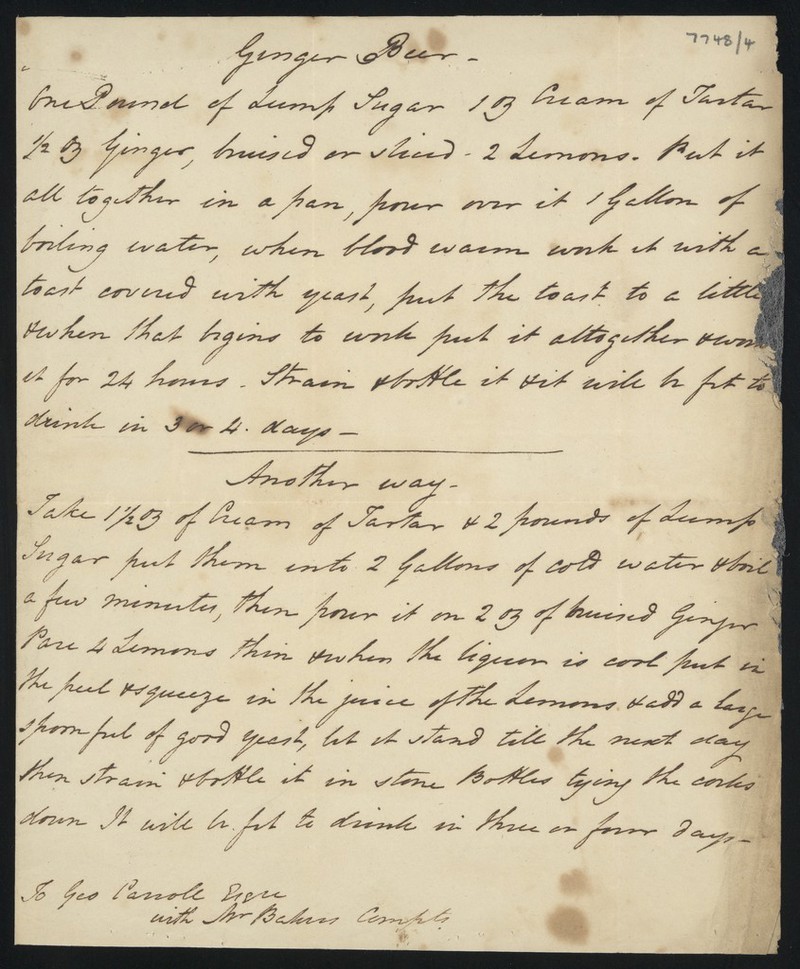 7748/4
Ginger Beer -
One Pound of Lump Sugar 1 oz Cream of Tartar
1/2 oz Ginger, bruised or sliced - 2 Lemons. Put it
all together in a pan, pour over it 1 Gallon of
boiling water, when blood warm work it with a
toast covered with yeast, put the toast to a little
& when that begins to work put it altogether & work
it for 24 hours. Strain & bottle it & it will be fit to
drink in 3 or 4 days -
Another way -
Take 1 1/2 oz of Cream of Tartar & 2 pounds of Lump
Sugar put them into 2 Gallons of cold water & boil
a few minutes, then pour it on 2 oz of bruised Ginger
Pare 4 Lemons thin & when the liquor is cool put in
the peel & squeeze in the juice of the Lemons & add a large
spoonful of good yeast, let it stand till the next day
then strain & bottle it in stone Bottles tying the corks
down It will be fit to drink in three or four days -
To Geo Carroll Esqre
with Mr Bakers Compts